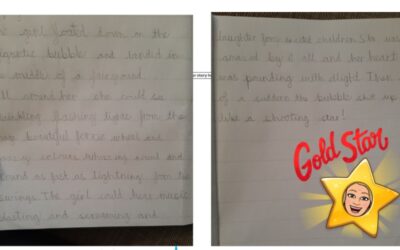 girl floated down on the
gigantic bubble and landed in
the middle of a fairground.
All around her she could see
twinkling, flashing lights from the
most beautiful ferris wheel and
colours whizzing round and
round as fast as lightning from the
swings. The girl could hear music
blasting and screaming and
laughter from excited children. She was
amazed by it all and her heart
was pounding with delight. Then
of a sudden the bubble shot up
like a shooting star!
Gold Star